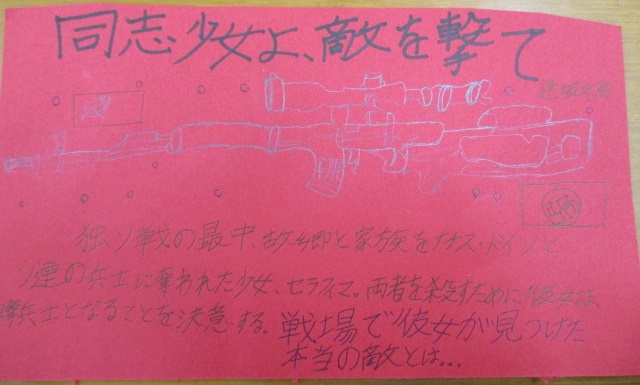 同志少女よ、敵を撃て
逢坂冬馬
独ソ戦の最中、故郷と家族をナチス・ドイツと
ソ連の兵士に奪われた少女、セラフィマ。両者を殺すために彼女は
兵士となることを決意する。戦場で彼女が見つけた
本当の敵とは...